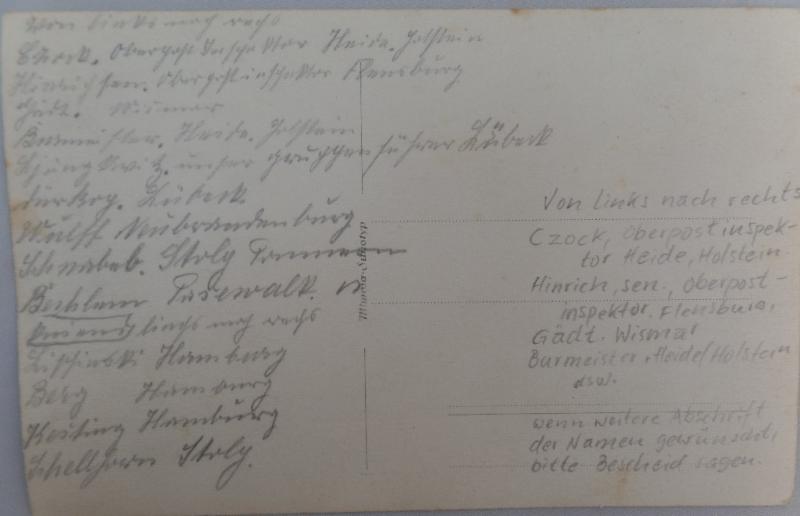 von links nach rechts
Czock. Oberpostinspektor Heide. Holstein
Hinrichsen. Oberpostinspektor Flensburg
Gädt. Wismar
Burmeister. Heide. Holstein
unser Gruppenführer Lübeck
Lübeck.
Wulff Neubrandenburg
Schnabel. Stolp Pommern
Pasewalk.
kniend links nach rechts
Lipinski Hamburg
Berg Hamburg
Keiting Hamburg
Schellhorn Stolp.
Mimosa
Von links nach rechts
Czock, Oberpostinspek-
tor Heide, Holstein
Hinrich, sen., Oberpost-
inspektor. Flensburg,
Gädt. Wismar
Burmeister, Heide/Holstein
usw.
wenn weitere Abschrift
der Namen gewünscht,
bitte Bescheid sagen.